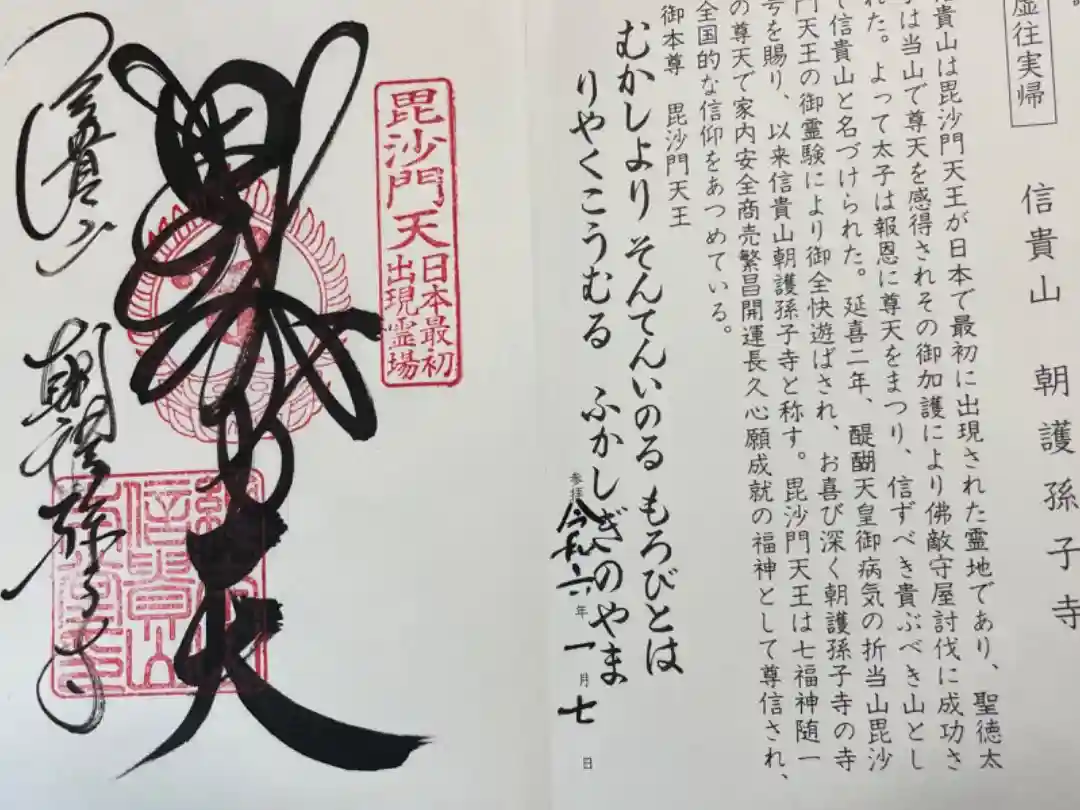 虚往実帰
信貴山　朝護孫子寺
信貴山は毘沙門天王が日本で最初に出現された霊地であり、聖徳太
子は当山で尊天を感得されその御加護により佛敵守屋討伐に成功さ
れた。よって太子は報恩に尊天をまつり、信ずべき貴ぶべき山とし
て信貴山と名づけられた。延喜二年、醍醐天皇御病気の折当山毘沙
門天王の御霊験により御全快遊ばされ、お喜び深く朝護孫子寺の寺
号を賜り、以来信貴山朝護孫子寺と称す。毘沙門天王は七福神随一
の尊天で家内安全商売繁昌開運長久心願成就の福神として尊信され、
全国的な信仰をあつめている。
御本尊　毘沙門天王
むかしより そんてんいのる もろびとは
りやくこうむる ふかしぎのやま
参拝 令和六年一月七日
毘沙門天
日本最初
出現霊場
毘沙門天
信貴山 朝護孫子寺